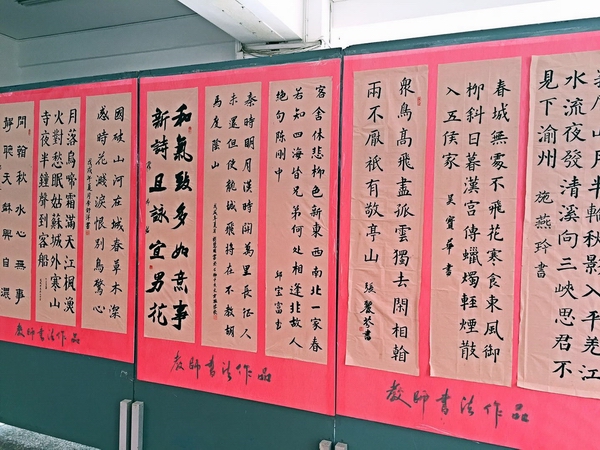 山月半輪秋影入平羌江
水流夜發清溪向三峽思君不
見下渝州
施燕玲書
春城無處不飛花寒食東風御
柳斜日暮漢宮傳蠟燭輕煙散
入五侯家
吳寶華書
衆鳥高飛盡孤雲獨去閑相看
兩不厭祇有敬亭山
張麗芬書
教師書法作品
客舍休悲柳色新東西南北一家春
若知四海皆兄弟何處相逢非故人
絶句陳剛中
邱宝富書
秦時明月漢時関萬里長征人
未還但使龍城飛將在不教胡
馬度陰山
和氣致多如意事
新詩且詠宜男花
教師書法作品
國破山河在城春草木深
感時花濺淚恨別鳥驚心
月落烏啼霜滿天江楓漁
火對愁眠姑蘇城外寒山
寺夜半鐘聲到客船
閒看秋水心無事
靜聆天龢興自濃
教師書法作品